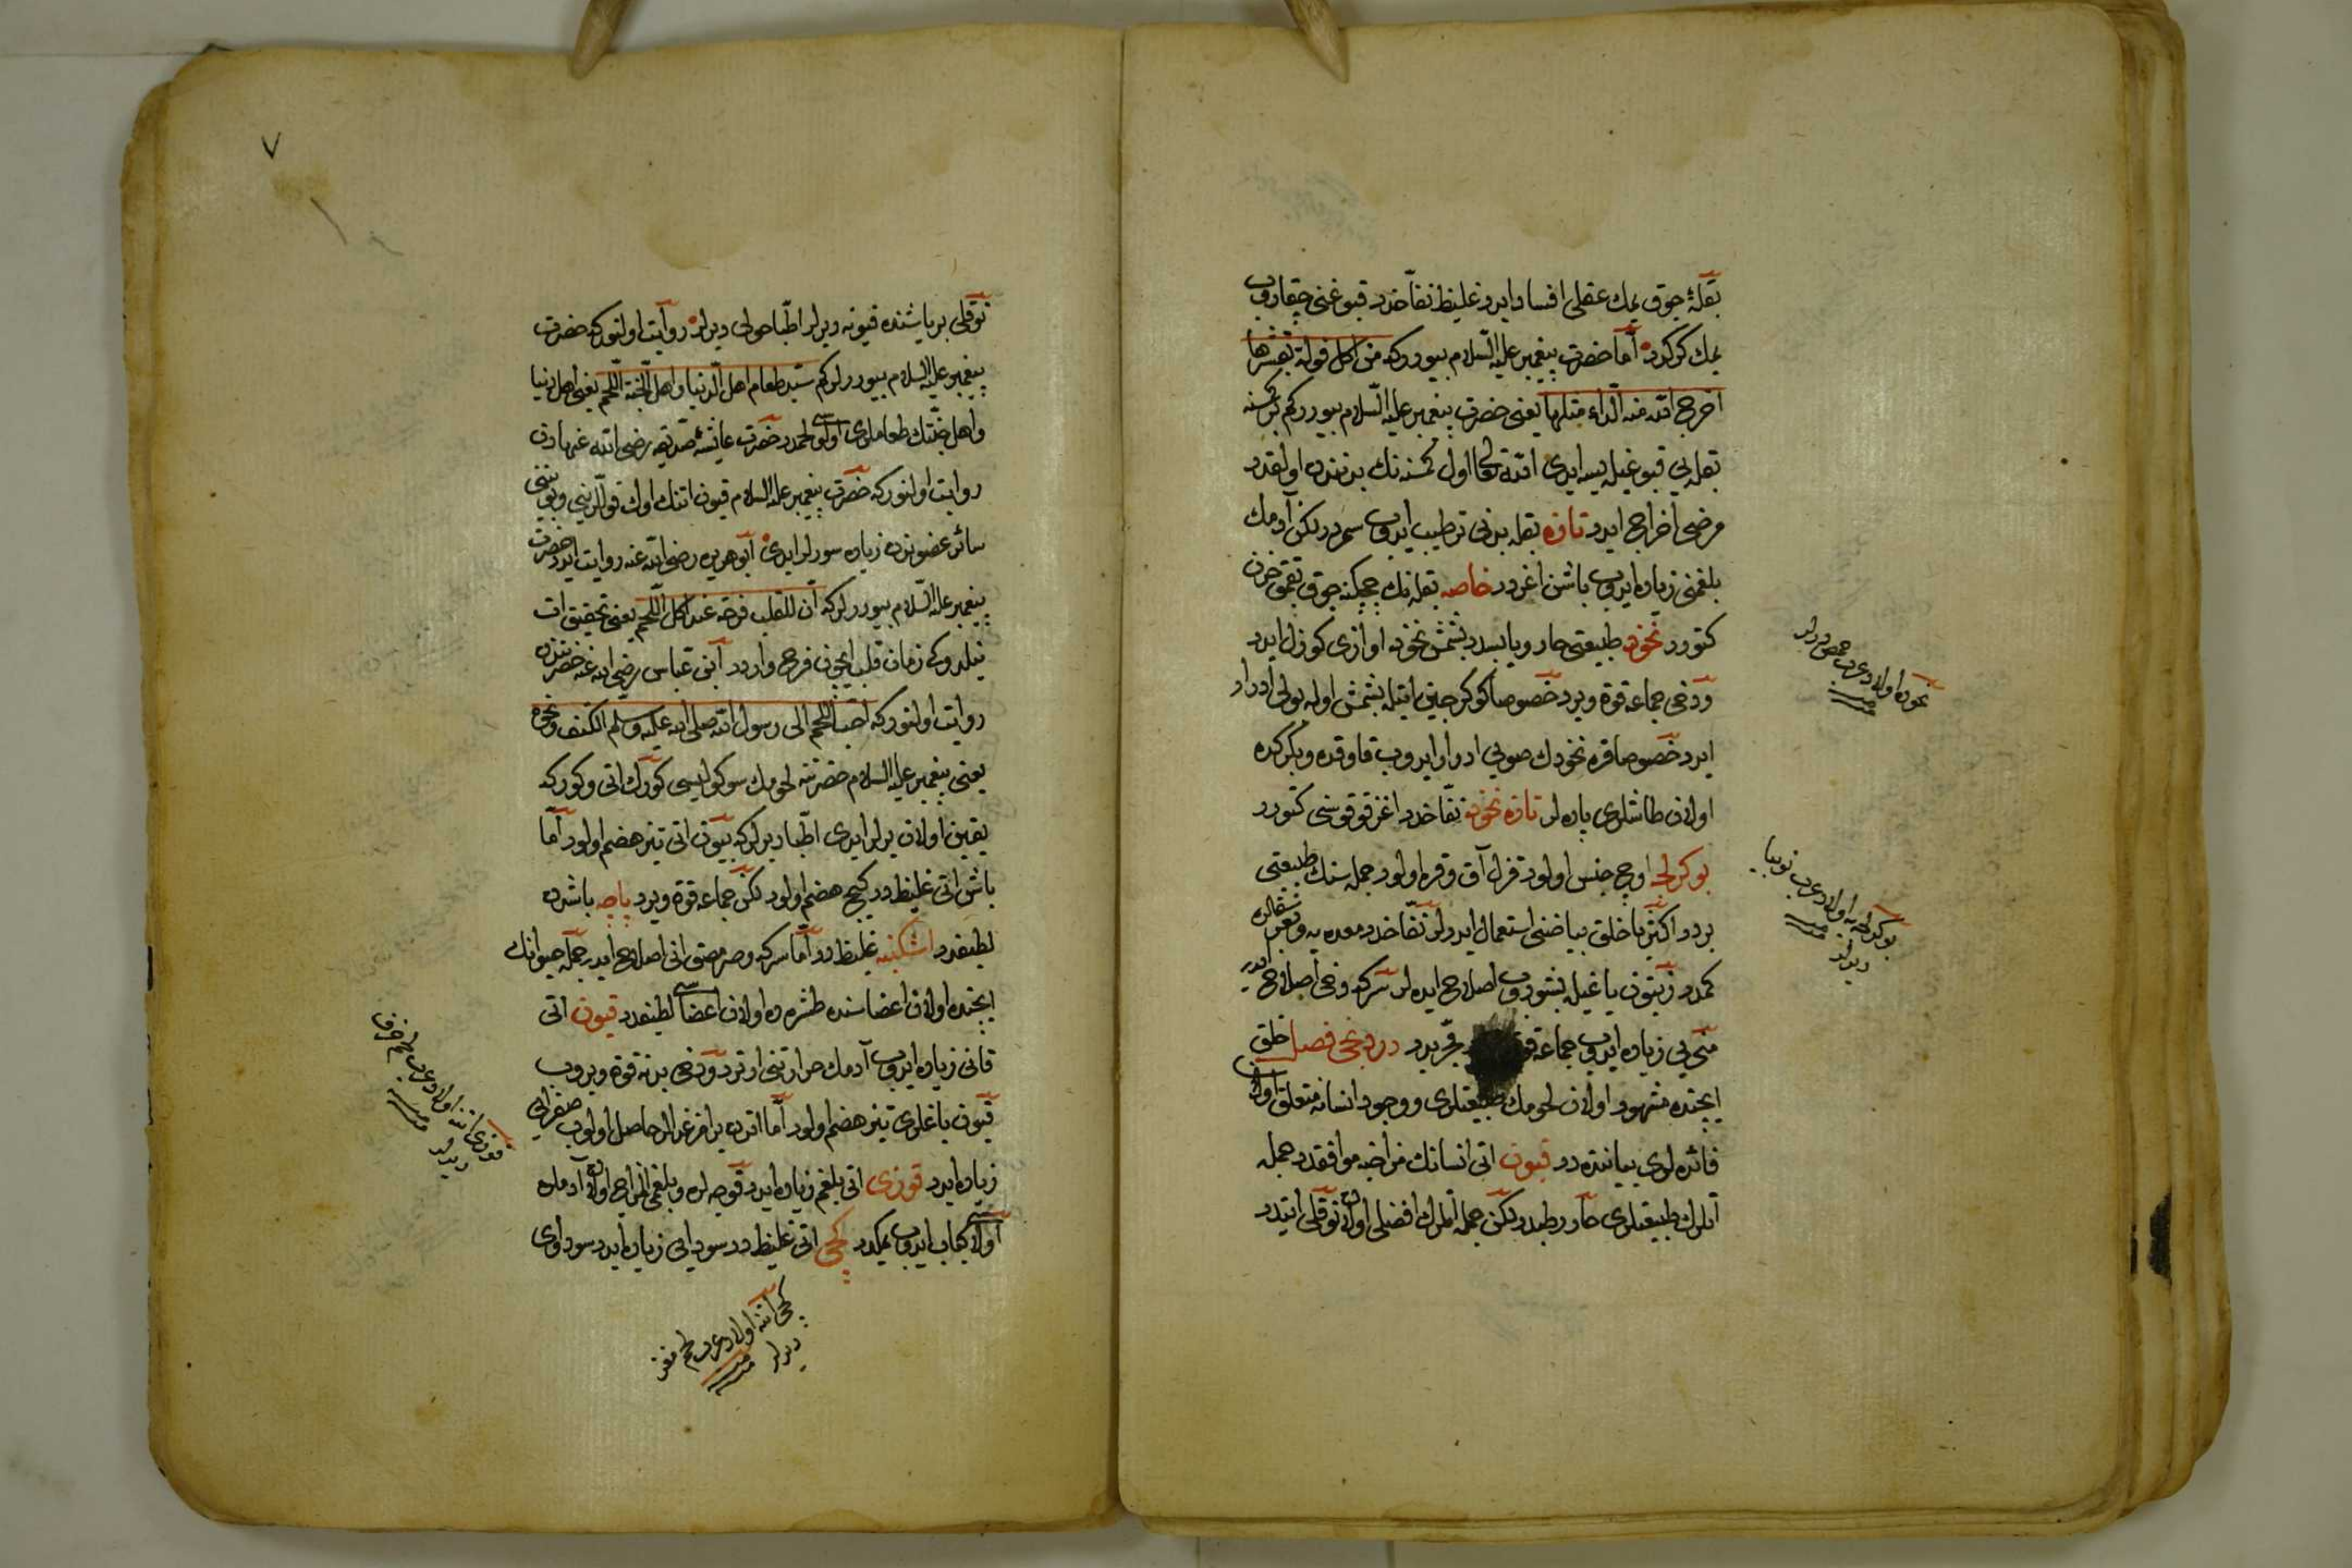 بقلهٔ چوق يمك عقلى افساد ايدر غليظ نفاخدر قبوغنى چقاروب
يمك كركدر اما حضرت پيغمبر عليه السلام بيورركه من اكل فولة بقشرها
اخرج الله منه الداء مثلها يعنى حضرت پيغمبر عليه السلام بيوررکم بر كمسنه
بقله يى قبوغيله يسه ايدى الله تعالى اول كمسنه نك بدننده اولقدر
مرضى اخراج ايدر تازه بقله بدنى ترطيب ايدوب سمردر لكن آدمك
بلغمنى زياده ايدوب باشن اغردر خاصه بقله نك چچكنه چوق بقمق حزن
كتورر نخود طبيعتى حار ويابسدر بشمش نخود اوازى كوزل ايدر
ودخى جماعه قوة ويرر خصوصا كوكرجين اتيله بشمش اوله بولى ادرار
ايدر خصوصا قره نخودك صويى ادرار ايدوب قاوقده وبكركده
اولان طاشلرى پاره لر تازه نخود نفاخدر اغز قوقوسى كتورر
بوكرلجه اوچ جنس اولور قزل آق وقره اولور جمله سنك طبيعتى
بردر اكثريا خلق بياضنى استعمال ايدرلر نفاخدر معده يه وبغرسقلره
كمدر زيتون ياغيله بشوروب اصلاح ايده لر سركه دخى اصلاح ايدر
منى يى زياده ايدوب جماعه قوة ويرر دردنجى فصل خلق
ايچنده مشهور اولان لحومك طبيعتلرى ووجود انسانه متعلق اولان
فائده لرى بياننده در قيون اتى انسانك مزاجنه موافقدر جمله
اتلرك طبيعتلرى حار رطبدر لكن جمله اتلرك افضلى اولان توقلى اتيدر
نخوده اولاد عرب حمص ديرلر
بوكرلجه يه اولاد عرب لوبيا
ديرلر
٧
توقلى بر ياشنده قيونه ديرلر اطبا حولى ديرلر روايت اولنوركه حضرت
پيغمبر عليه السلام بيوررلركم سيد طعام اهل الدنيا واهل الجنة اللحم يعنى اهل دنيا
واهل جنتك طعاملرى اولوسى لحمدر حضرت عائشهٔ صديقه رضى الله عنهادن
روايت اولنوركه حضرت پيغمبر عليه السلام قيون اتنك اوك قوللرينى وبوينى
سائر عضوندن زياده سورلر ايدى ابو هريره رضى الله عنه روايت ايدر حضرت
پيغمبر عليه السلام بيوررلركه ان للقلب فرحة عند اكل اللحم يعنى تحقيق ات
ينلدوكى زمان قلب ايچون فرح واردر ابن عباس رضى الله عنه حضرتندن
روايت اولنوركه احب اللحم الى رسول الله صلى الله عليه وسلم الكتف
يعنى پيغمبر عليه السلام حضرتنه لحومك سوكولوسى كورك اتى وكوركه
يقين اولان يرلر ايدى اطبا ديرلركه بيون اتى تيز هضم اولور اما
باش اتى غليظدر كيج هضم اولور لكن جماعه قوة ويرر پاچه باشدن
لطيفدر اشكنبه غليظدر اما سركه وصرمسق انى اصلاح ايدر جمله حيوانك
ايچنده اولان اعضاسنده طشره ده اولان اعضاسى لطيفدر قيون اتى
قانى زياده ايدوب آدمك حرارتنى ارتردر ودخى بدنه قوة ويروب
قيون ياغلرى تيز هضم اولور اما اندن بر از غدالر حاصل اولوب صفرايى
زياده ايدر قوزى اتى بلغم زياده ايدر قوجه لره وبلغمى المزاج اولان آدملره
اولاسى كباب ايدوب يمكدر كچى اتى غليظدر سودايى زياده ايدر سوداوى
قوزى اتنه اولاد عرب لحم خروف
ديرلر
كچى اتنه اولاد عرب لحم معز
ديرلر